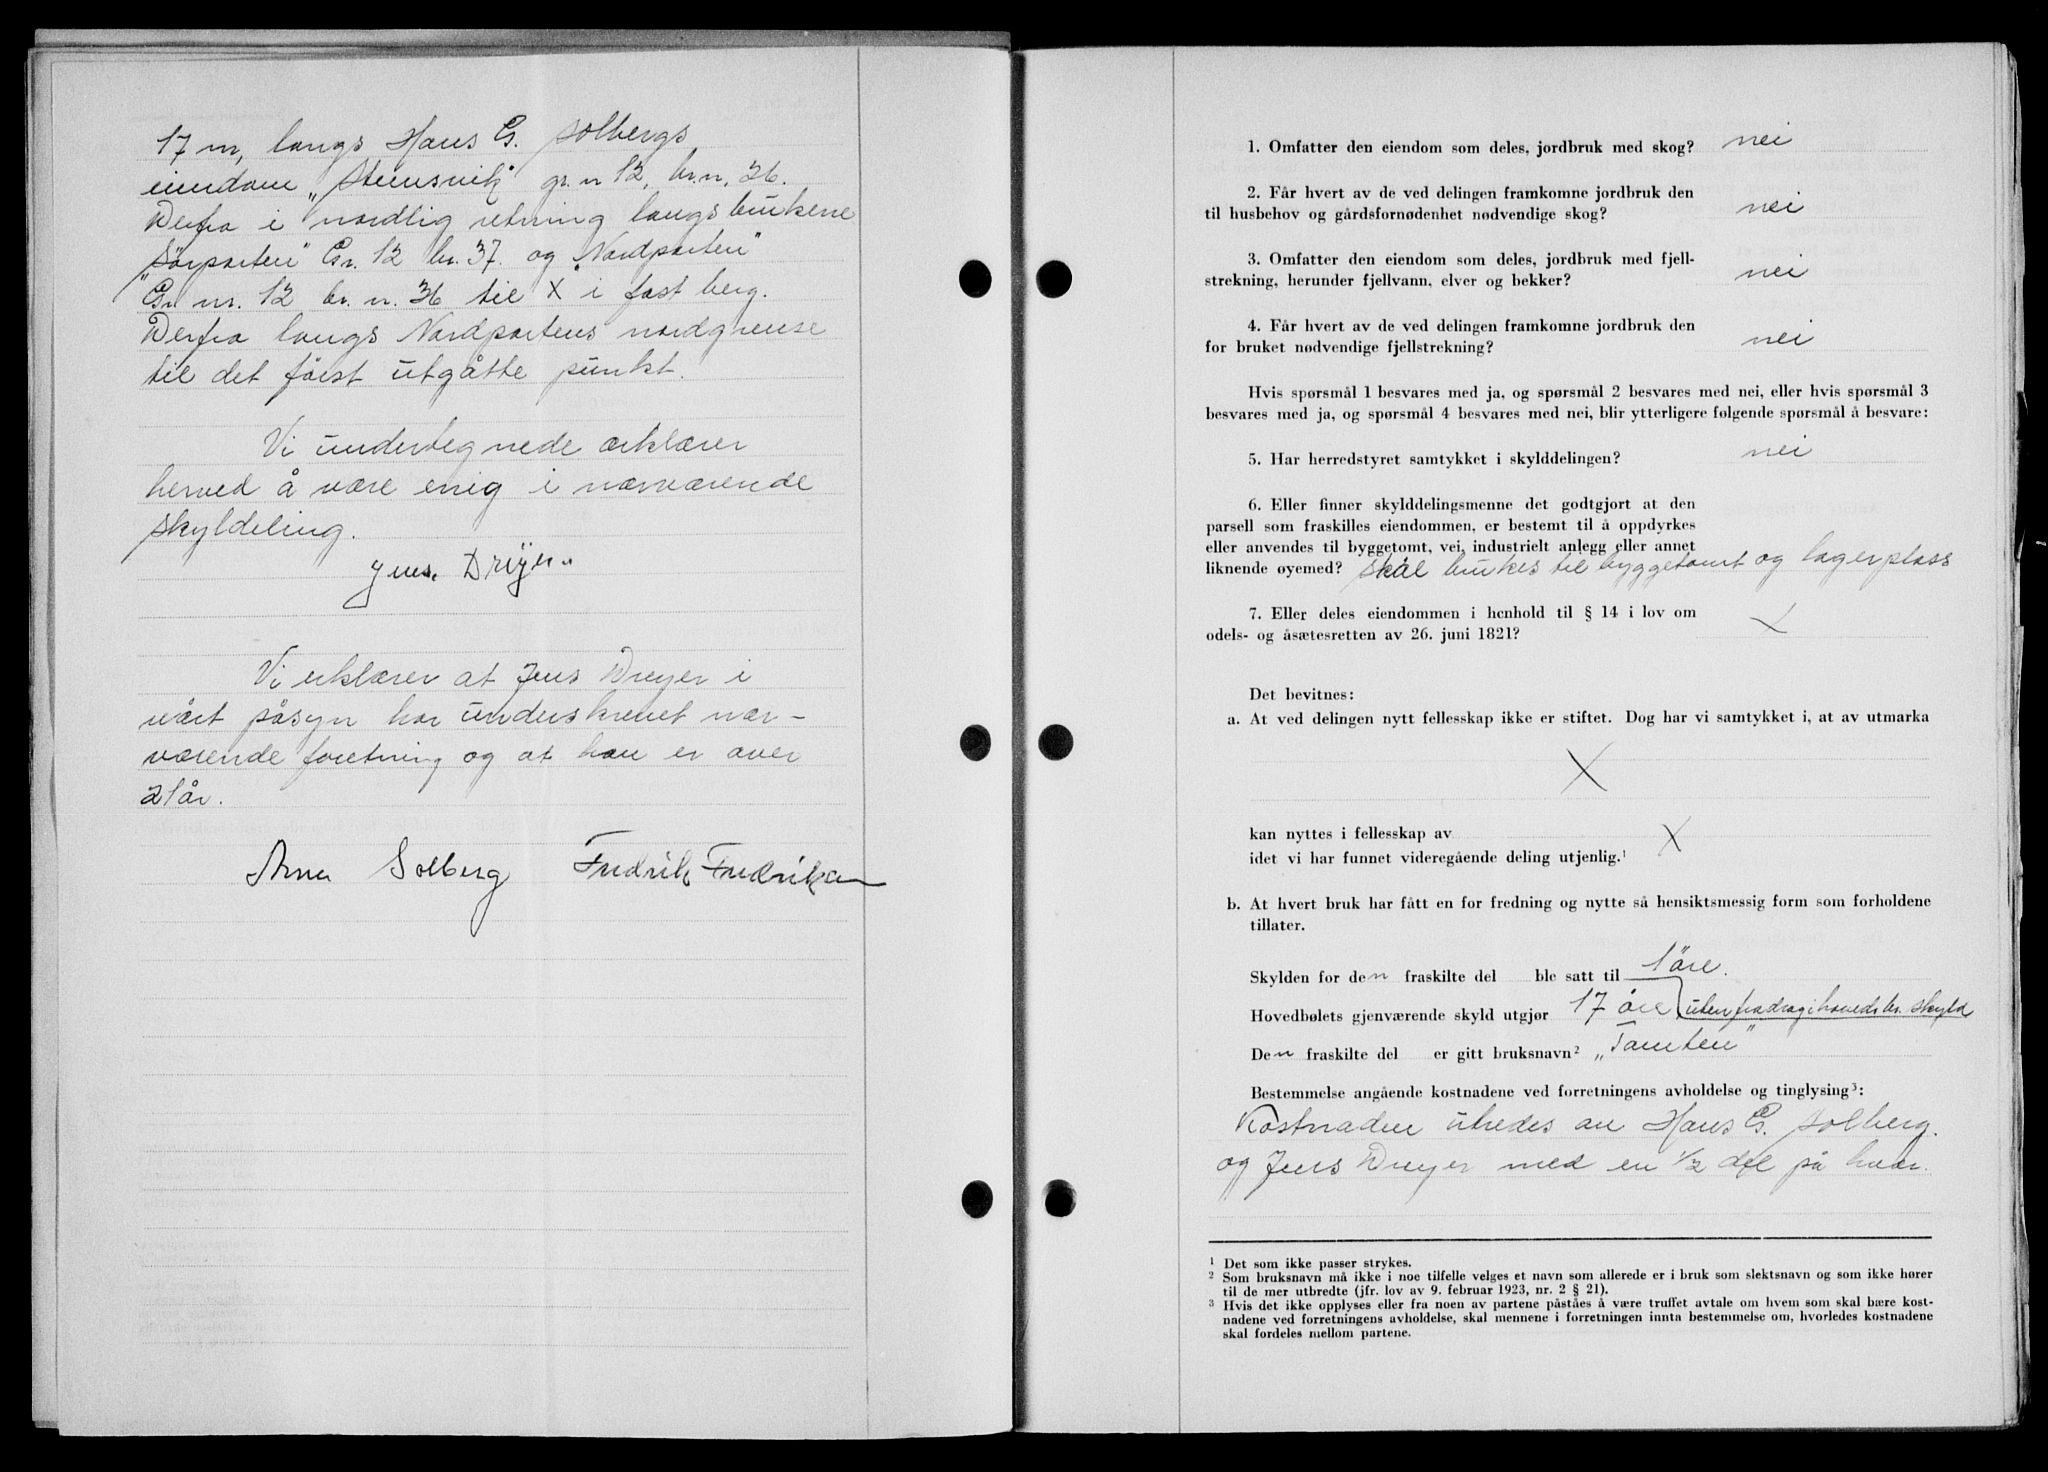 17 m, langs Hans G. Solbergs
eiendom „Steinsvik" gr. n 12, br. n, 36.
Derfra i nordlig retning langs brukene
„Sörparten" Gr. 12 br. 37. og „Nordparten"
Gr. nr. 12 br. n. 36 til X i fast berg.
Derfra langs Nordpartens nordgrense
til det först utgåtte punkt.
Vi undertegnede ærklærer
herved å være enig i nærværende
skyldeling.
Jens. Dreyer.
Vi erklærer at Jens Dreyer i
vårt påsyn har underskrevet nær-
værende forretning og at han er over
21 år.
Arne Solberg Fredrik Fredriksen
1. Omfatter den eiendom som deles, jordbruk med skog? nei
2. Får hvert av de ved delingen framkomne jordbruk den
til husbehov og gårdsfornødenhet nødvendige skog? nei
3. Omfatter den eiendom som deles, jordbruk med fjell-
strekning, herunder fjellvann, elver og bekker? nei
4. Får hvert av de ved delingen framkomne jordbruk den
for bruket nødvendige fjellstrekning? nei
Hvis spørsmål 1 besvares med ja, og spørsmål 2 besvares med nei, eller hvis spørsmål 3
besvares med ja, og spørsmål 4 besvares med nei, blir ytterligere følgende spørsmål å besvare:
5. Har herredstyret samtykket i skylddelingen? nei
6. Eller finner skylddelingsmenne det godtgjort at den
parsell som fraskilles eiendommen, er bestemt til å oppdyrkes
eller anvendes til byggetomt, vei, industrielt anlegg eller annet
liknende øyemed? Skal brukes til byggetomt og lagerplass
7. Eller deles eiendommen i henhold til § 14 i lov om
odels- og åsætesretten av 26. juni 1821? X
Det bevitnes:
a. At ved delingen nytt fellesskap ikke er stiftet. Dog har vi samtykket i, at av utmarka
X
kan nyttes i fellesskap av X
idet vi har funnet videregående deling utjenlig.¹
b. At hvert bruk har fått en for fredning og nytte så hensiktsmessig form som forholdene
tillater.
Skylden for den fraskilte del ble satt til 1 öre.
Hovedbølets gjenværende skyld utgjør 17 öre uten fradrag i hovedsbr. skyld
Den fraskilte del er gitt bruksnavn² „Tomten"
Bestemmelse angående kostnadene ved forretningens avholdelse og tinglysing³:
Kostnaden utredes av Hans G. Solberg.
og Jens Dreyer med en 1/2 del på hver.
¹ Det som ikke passer strykes.
² Som bruksnavn må ikke i noe tilfelle velges et navn som allerede er i bruk som slektsnavn og som ikke hører
til de mer utbredte (jfr. lov av 9. februar 1923, nr. 2 § 21).
³ Hvis det ikke opplyses eller fra noen av partene påståes å være truffet avtale om hvem som skal bære kost-
nadene ved forretningens avholdelse, skal mennene i forretningen innta bestemmelse om, hvorledes kostnadene
skal fordeles mellom partene.